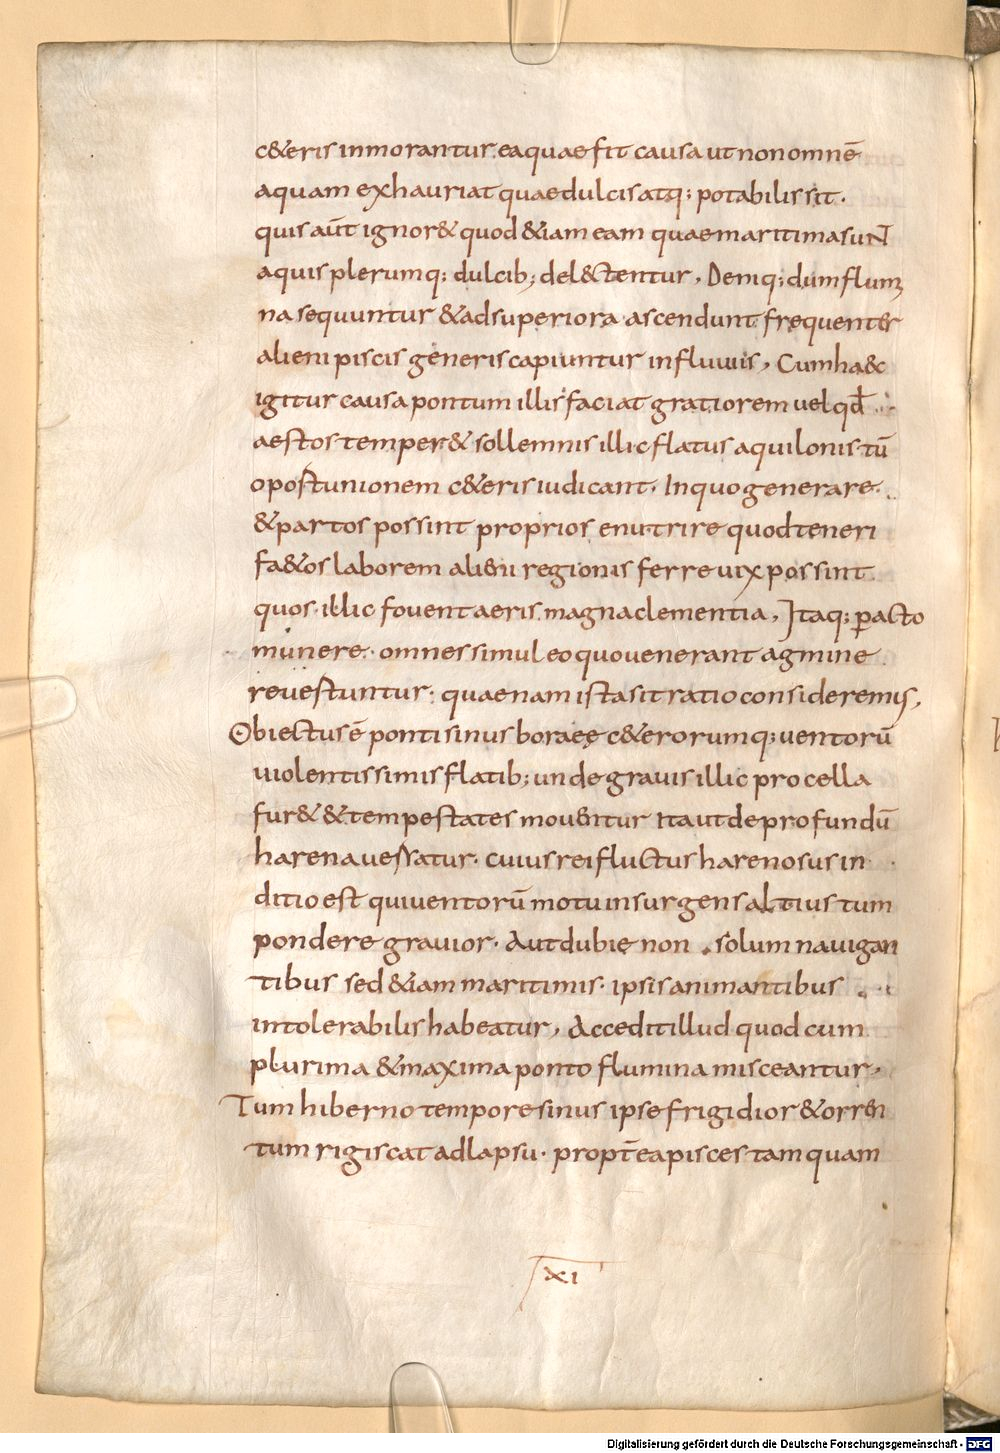 c&eris inmorantur. eaquae fit causa ut non omnē
aquam exhauriat quae dulcis atq; potabilis sit.
quis aūt ignor& quod &iam eam quae maritima suNT
aquis plerumq; dulcib; del&ctentur, Deniq; dum flumi
na sequuntur & ad superiora ascendunt frequenter
alieni piscis generis capiuntur in fluuiis, Cum ha&c
igitur causa pontum illis faciat gratiorem uel qđ
aestos temper& sollemnis illic flatus aquilonis tū
opostunionem c&eris iudicant. In quo generare
& partos possint proprios enutrire quod teneri
fa&os laborem alieni regionis ferre uix possint
quos illic fovent aeris magna clementia, Itaq; pacto
munere. omnes simul eo quo uenerant agmine
reuestuntur. quaenam ista sit ratio consideremus,
Obiectus ē ponti sinus boraeę c&erorumq; ventorū
uiolentissimis flatib; unde grauis illic procella
fur& & tempestates mouentur ita ut de profundū
harena uessatur. cuius rei fluctus harenosus in
ditio est qui ventorū motu insurgens altius tum
pondere grauior. Aut dubie non solum nauigan
tibus sed &iam maritimis. ipsis animantibus
intolerabilis habeatur, Accedit illud quod cum
plurima & maxima ponto flumina misceantur,
Tum hiberno tempore sinus ipse frigidior & orren
tum rigiscat adlapsu. propt̄ea pisces tam quam
xi
Digitalisierung gefördert durch die Deutsche Forschungsgemeinschaft - DFG